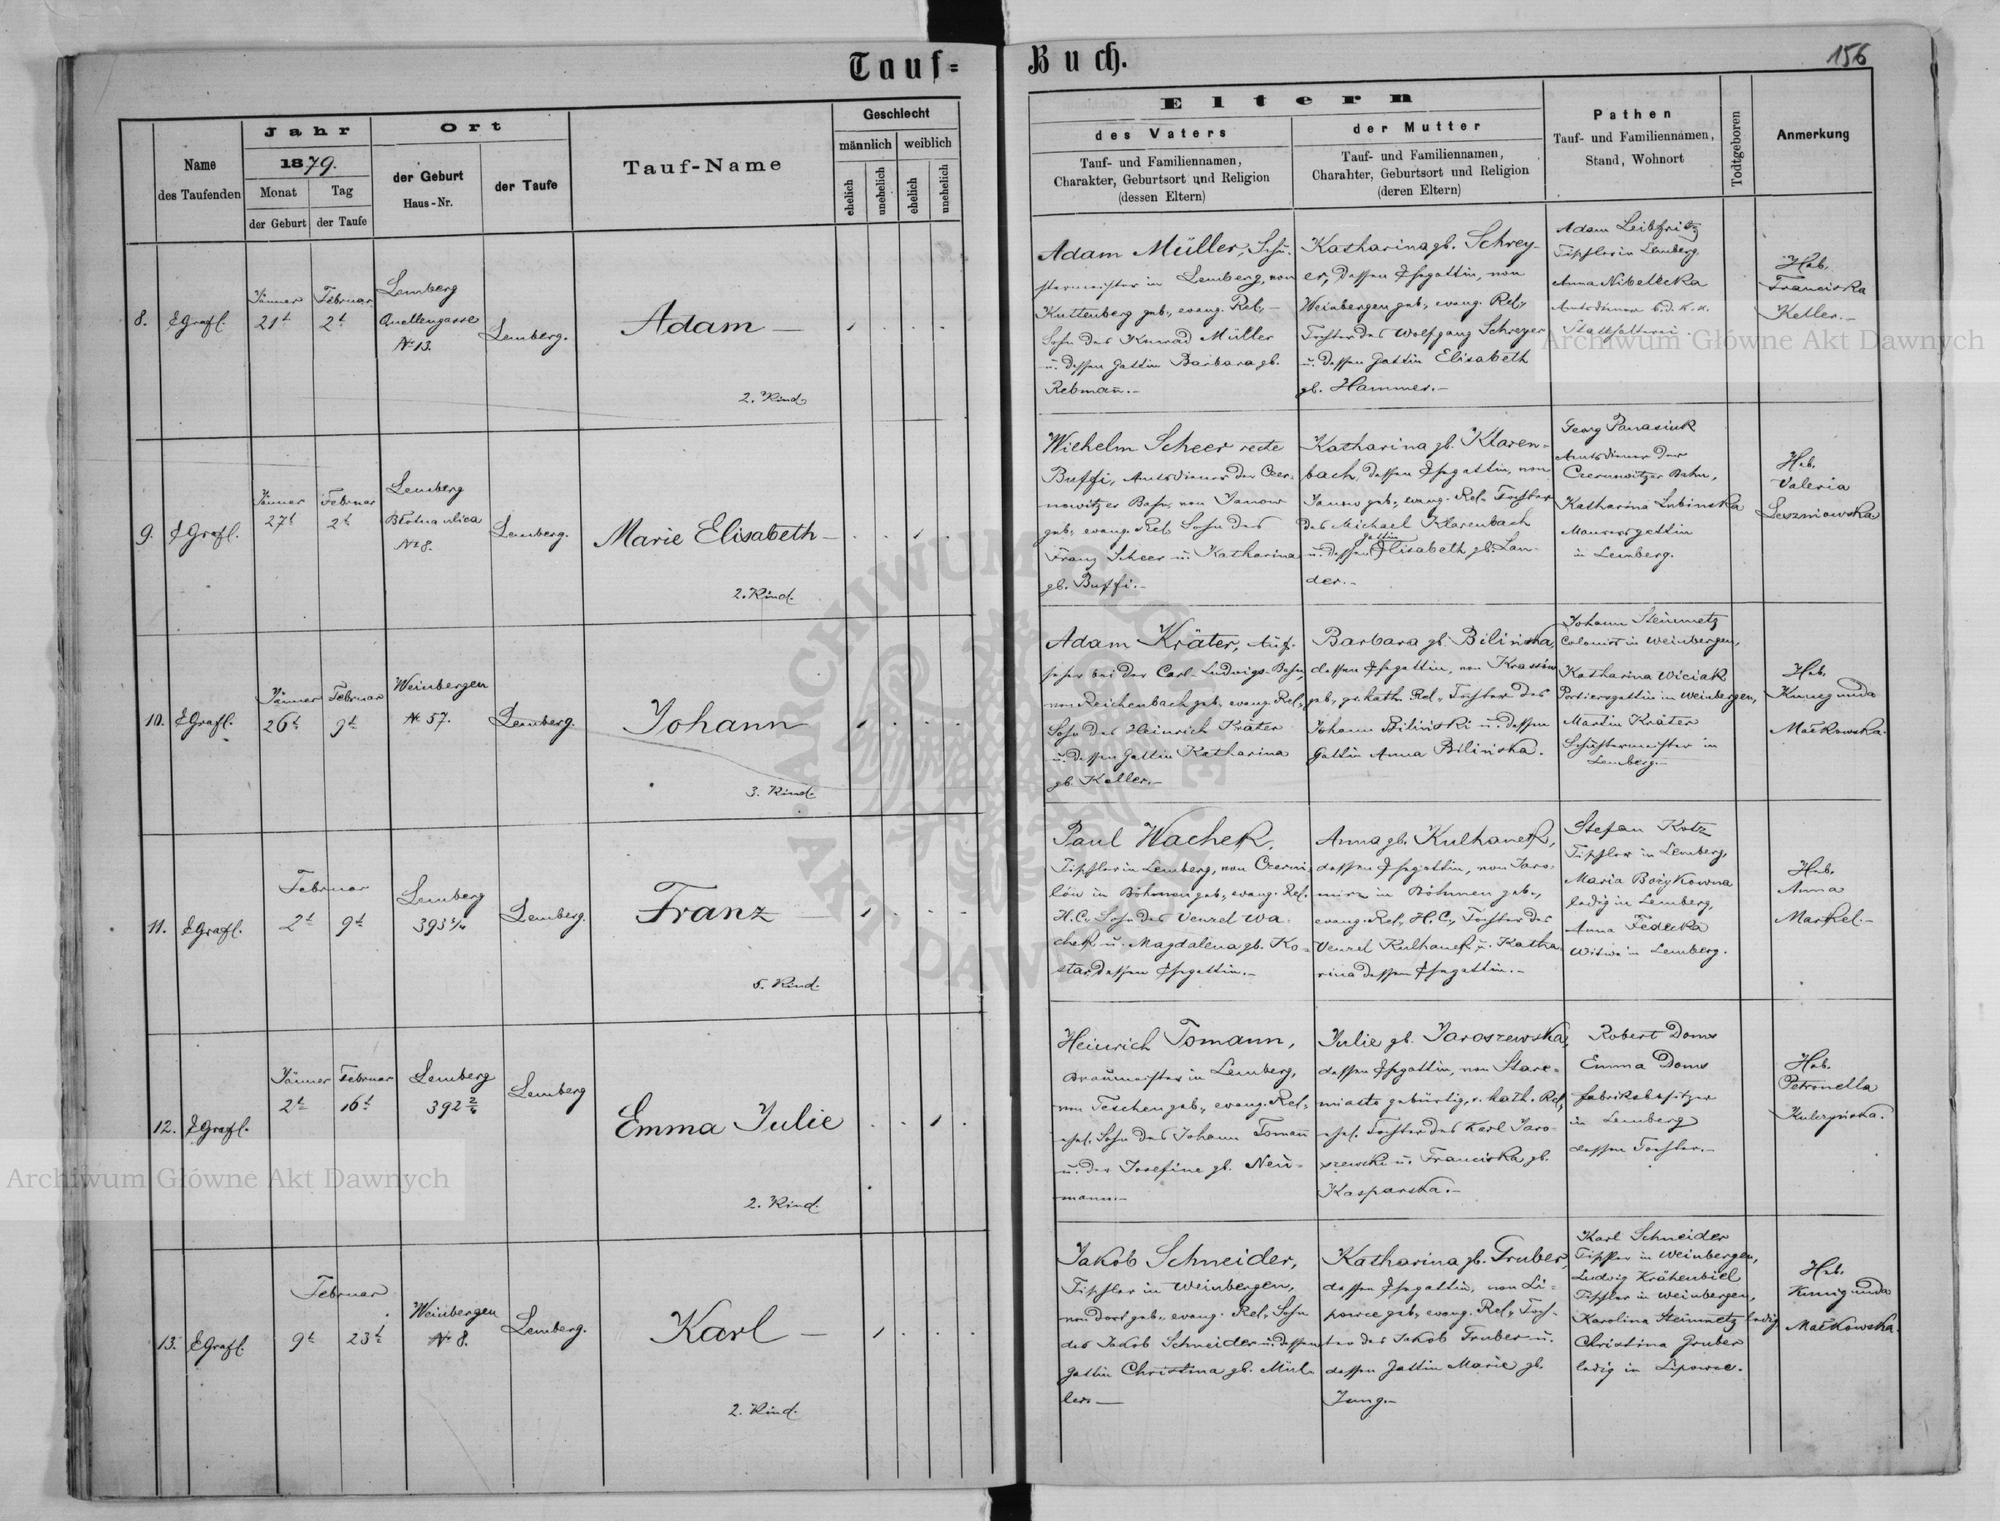 Tauf=
Buch.
156
Name
des Taufenden
Jahr
1879.
Monat
Tag
der Geburt
der Taufe
Ort
der Geburt
Haus-Nr.
der Taufe
Tauf-Name
Geschlecht
männlich
weiblich
ehelich
unehelich
ehelich
unehelich
Eltern
des Vaters
Tauf- und Familiennamen,
Charakter, Geburtsort und Religion
(dessen Eltern)
der Mutter
Tauf- und Familiennamen,
Charakter, Geburtsort und Religion
(deren Eltern)
Pathen
Tauf- und Familiennamen,
Stand, Wohnort
Todtgeboren
Anmerkung
8.
E Grafl.
Jänner
21t
Februar
2t
Lemberg
Quellengasse
No 13.
Lemberg.
Adam —
2. Kind.
Adam Müller, Schu-
stermeister in Lemberg, von
Kuttenberg geb., evang. Rel.,
Sohn des Konrad Müller
u. dessen Gattin Barbara gb.
Rebmañ.—
Katharina gb. Schrey-
er, dessen Ehegattin, von
Weinbergen geb., evang. Rel.,
Tochter des Wolfgang Schreyer
u. dessen Gattin Elisabeth
gb. Hammer.—
Adam Leibfritz
Tischler in Lemberg,
Anna Nibelecka
Amtsdiener b. d. k. k.
Statthalterei.
Heb.
Franciska
Keller.—
9.
E Grafl.
Jänner
27t
Februar
2t
Lemberg
Błotna ulica
No 8.
Lemberg.
Marie Elisabeth —
2. Kind.
Wilhelm Scheer recte
Buffi, Amtsdiener der Czer-
nowitzer Bahn, von Janow
geb., evang. Rel. Sohn des
Franz Scheer u. Katharina
gb. Buffi.—
Katharina gb. Klaren-
bach, dessen Ehegattin, von
Janow geb., evang. Rel. Tochter
des Michael Klarenbach
u. dessen Gattin Elisabeth gb. Lan-
der.—
Georg Panasiuk
Amtsdiener der
Czernowitzer Bahn,
Katharina Lubinska
Maurersgattin
in Lemberg.
Heb.
Valeria
Leszniowska
10.
E Grafl.
Jänner
26t
Februar
9t
Weinbergen
No 57.
Lemberg.
Johann
3. Kind.
Adam Kräter, Auf-
seher bei der Carl-Ludwigs-Bahn,
von Reichenbach geb., evang. Rel.,
Sohn des Heinrich Kräter
u. dessen Gattin Katharina
gb. Keller.—
Barbara gb. Bilińska,
dessen Ehegattin, von Krassów
geb., gr. kath. Rel., Tochter des
Johann Biliński u. dessen
Gattin Anna Bilińska.
Johann Steinmetz
Colonist in Weinbergen,
Katharina Wiciak
Portiersgattin in Weinbergen,
Martin Kräter
Schustermeister in
Lemberg.—
Heb.
Kunegunda
Małkowska.
11.
E Grafl.
Februar
2t
9t
Lemberg
393 2/4
Lemberg.
Franz —
5. Kind.
Paul Wachek,
Tischler in Lemberg, von Czerni-
lów in Böhmen geb., evang. Rel.
H. C., Sohn des Venzel Wa-
chek u. Magdalena gb. Ko-
star dessen Ehegattin.—
Anna gb. Kulhanek,
dessen Ehegattin, von Jaro-
mirz in Böhmen geb.,
evang. Rel., H. C., Tochter des
Venzel Kulhanek u. Katha-
rina dessen Ehegattin.—
Stefan Kotz
Tischler in Lemberg,
Maria Bożykowna
ledig in Lemberg,
Anna Fedecka
Witwe in Lemberg.
Heb.
Anna
Markel.—
12.
E Grafl.
Jänner
2t
Februar
16t
Lemberg
392 2/4
Lemberg
Emma Julie
2. Kind.
Heinrich Tomann,
Braumeister in Lemberg,
von Teschen geb., evang. Rel.,
ehel. Sohn des Johann Tomañ
u. der Josefine gb. Neu-
mann.—
Julie gb. Jaroszewska,
dessen Ehegattin, von Stare-
miasto gebürtig, r. kath. Rel.,
ehel. Tochter des Karl Jaro-
szewski u. Franciska gb.
Kasparska.—
Robert Doms
Emma Doms
Fabriksbesitzer
in Lemberg
dessen Tochter.—
Heb.
Petronella
Kulczyńska.
13.
E Grafl.
Februar
9t
23t
Weinbergen
No 8.
Lemberg.
Karl —
2. Kind.
Jakob Schneider,
Tischler in Weinbergen,
von dort geb., evang. Rel., Sohn
des Jakob Schneider u. dessen
Gattin Christina gb. Mül-
ler.—
Katharina gb. Gruber,
dessen Ehegattin, von Li-
powce geb., evang. Rel., Toch-
ter des Jakob Gruber u.
dessen Gattin Marie gb.
Jung.—
Karl Schneider
Tischler in Weinbergen,
Ludwig Krähenbiel
Tischler in Weinbergen,
Karolina Steinmetz ledig
Christina Gruber
ledig in Lipowce.
Heb.
Kunigunda
Małkowska.
Archiwum Główne Akt Dawnych
Archiwum Główne Akt Dawnych
ARCHIWUM GŁÓWNE AKT DAWNYCH